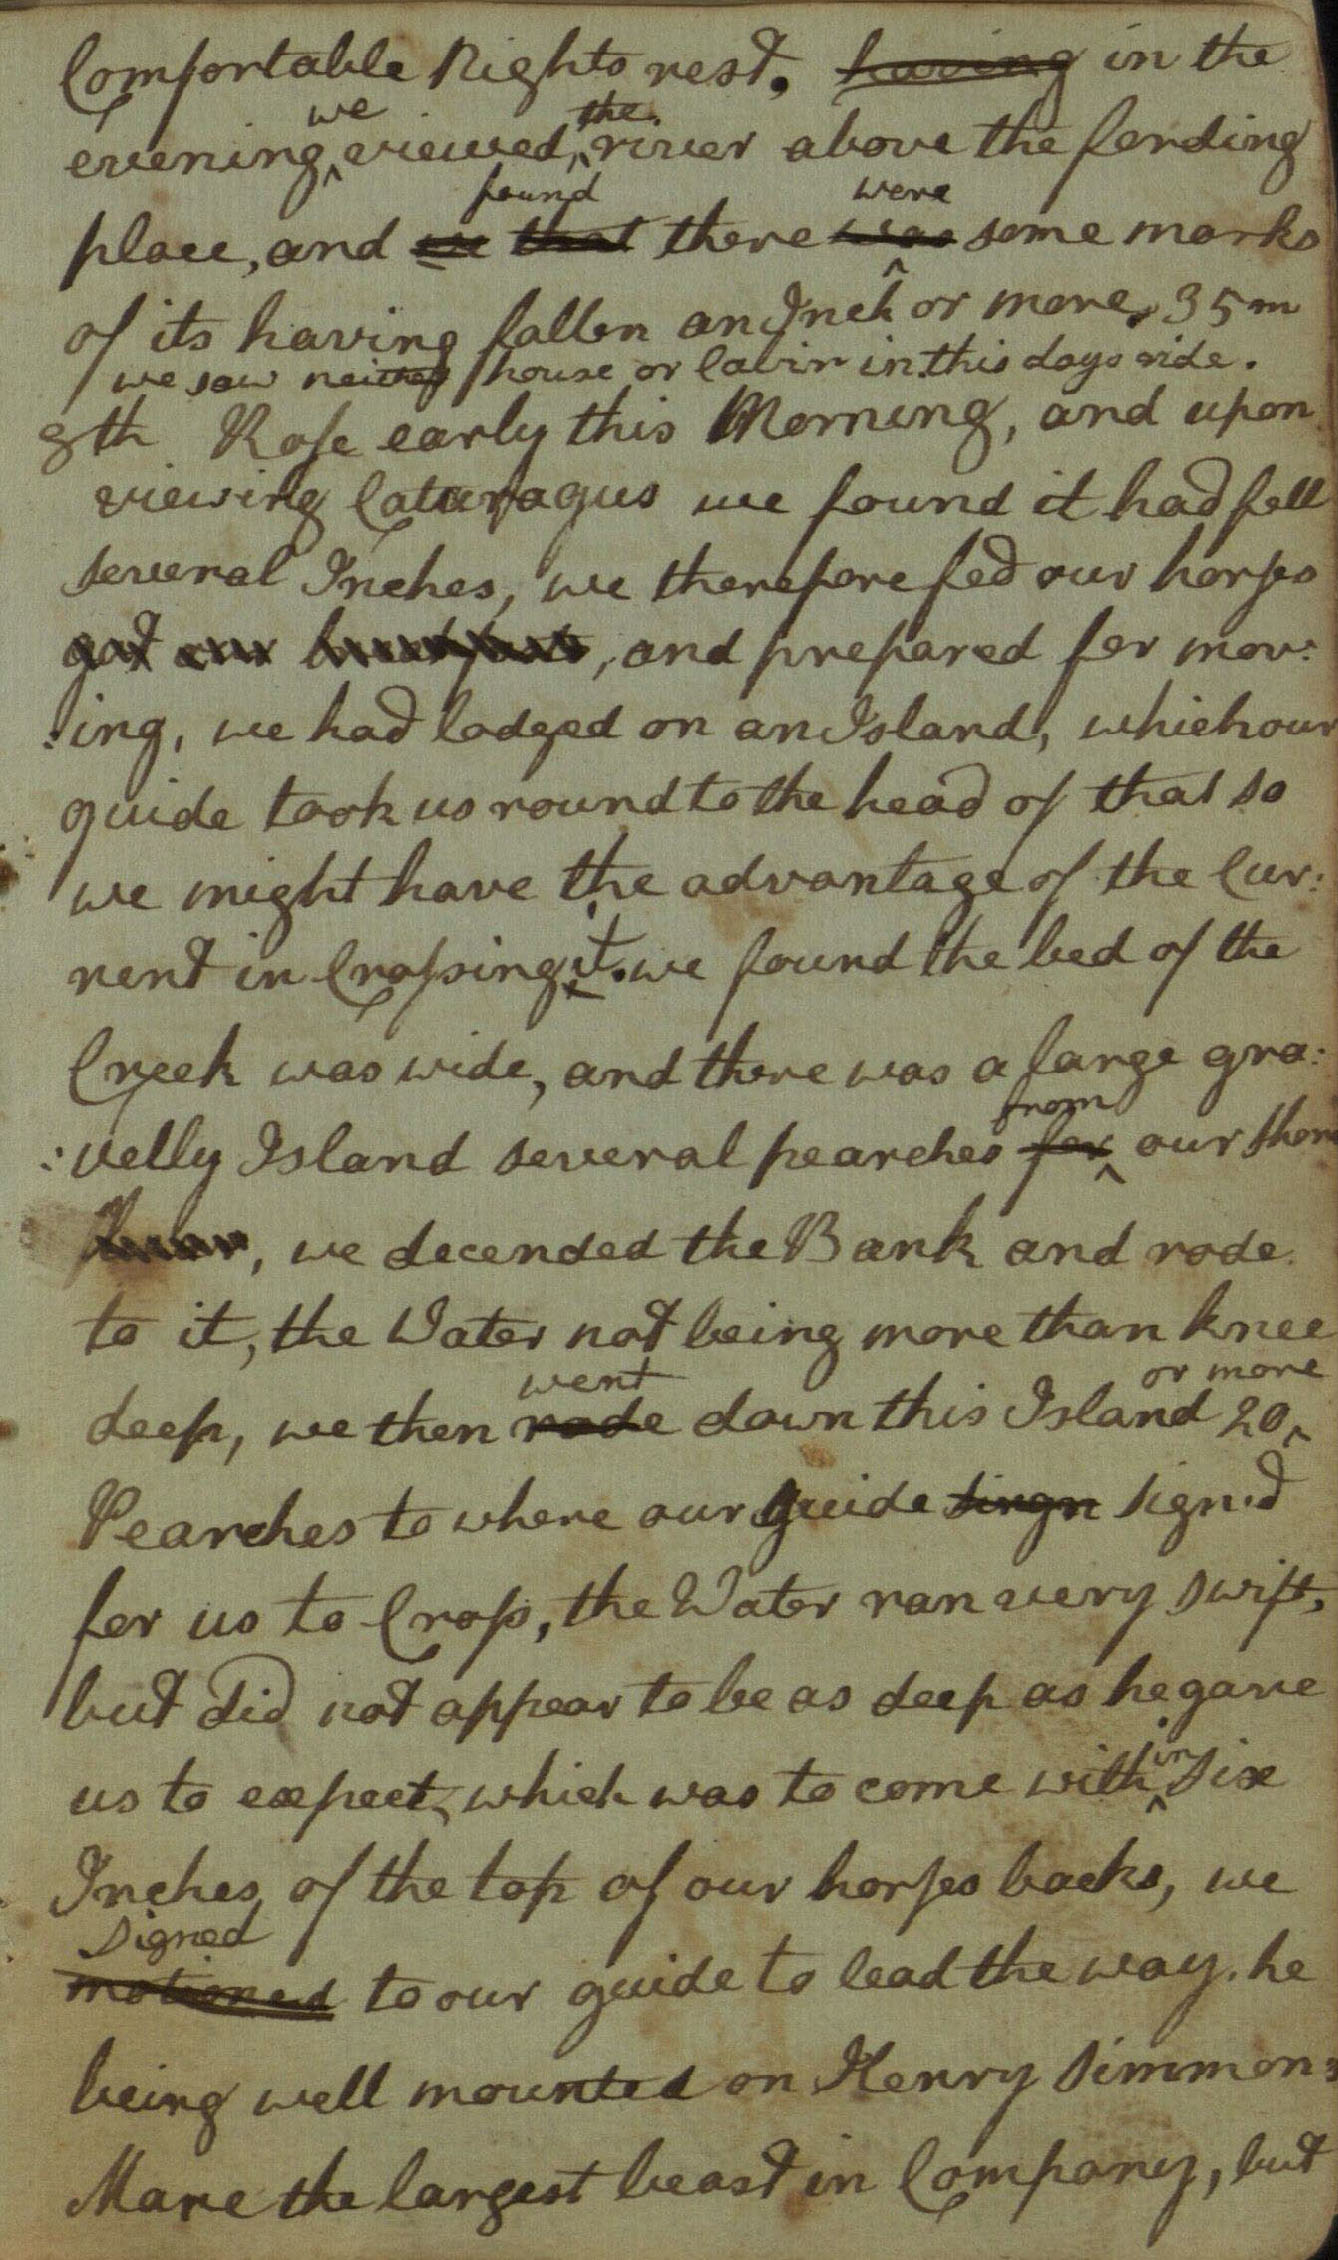 Comfortable Nights rest. having in the
evening we viewed, the river above the fording
place, and we that found there was were some marks
of its having fallen an Inch or more. 35 m
we saw neither house or Cabin in this days ride.
8th Rose early this Morning, and upon
viewing Cataragus we found it had fell
several Inches, we therefore fed our horses
got our breakfasts, and prepared for mov:
:ing, we had lodged on an Island, which our
guide took us round to the head of that so
we might have the advantage of the Cur:
rent in Crossing it. we found the bed of the
Creek was wide, and there was a large gra:
:velly Island several pearches for from our Shore
, we decended the Bank and rode
to it, the Water not being more than knee
deep, we then rode went down this Island 20 or more
Pearches to where our guide singn sign.d
for us to Cross, the Water ran very swift,
but did not appear to be as deep as he gave
us to expect, which was to come within Six
Inches of the top of our horses backs, we
motioned Signed to our guide to lead the way. he
being well mounted on Henry Simmons
Mare the largest beast in Company, but